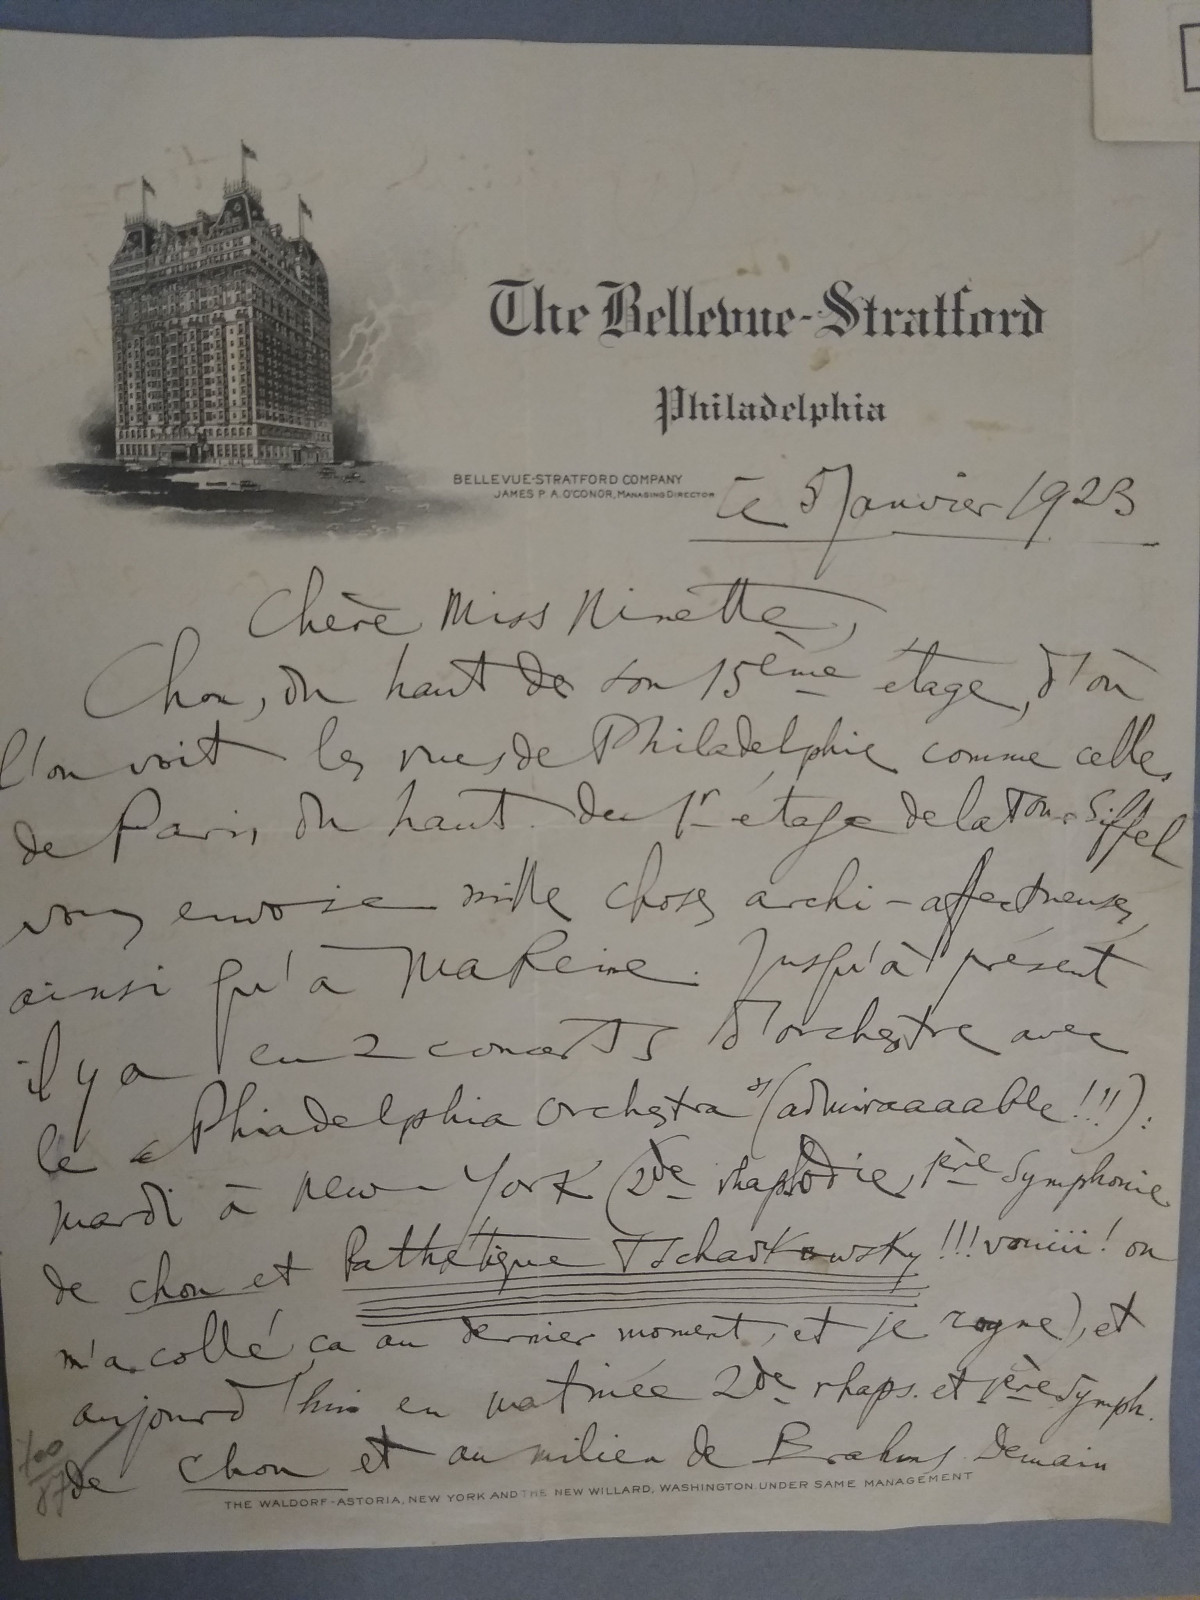 The Bellevue-Stratford
Philadelphia
BELLEVUE-STRATFORD COMPANY
JAMES P. A. O'CONOR, MANAGING DIRECTOR
le 5 Janvier 1923
Chère Miss Ninette,
Chou, du haut de son 15ème étage, d'où
l'on voit les rues de Philadelphie comme celles
de Paris du haut du 1r étage de la Tour Eiffel
vous envoie mille choses archi-affectueuses,
ainsi qu'à MaReine. Jusqu'à présent
il y a eu 2 concerts d'orchestre avec
le "Phiadelphia Orchestra" (admiraaaable!!!):
mardi à New-York (2de rhapsodie, 1ère Symphonie
de chou et Pathétique Tschaïkowsky!!! vouiii! on
m'a collé ça au dernier moment, et je rogne), et
aujourd'hui en matinée 2de rhaps. et 1ère Symph.
de chou et au milieu de Brahms. Demain
THE WALDORF-ASTORIA, NEW YORK AND THE NEW WILLARD, WASHINGTON UNDER SAME MANAGEMENT